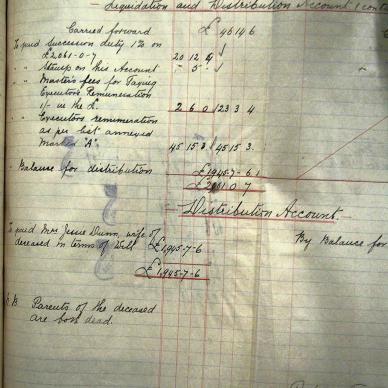 Liquidation and Distribution Account
Carried forward £ 46 14 6
To paid Succession duty 1% on
£2061-0-7 20 12 4
" Stamp on this Account - 5 -
" Master's fees for Taxing
Executors Remuneration
1/- in the £ 2 6 0 23 3 4
" Executors remuneration
as per list annexed
Marked "A" 45 15 3 45 15 3
" Balance for distribution £1945-7-6
£2061 0 7
Distribution Account
To paid Mrs Jessie Dunn, wife of
deceased in terms of Will £1,945-7-6
By Balance for
£1,945-7-6
N.B. Parents of the deceased
are both dead.